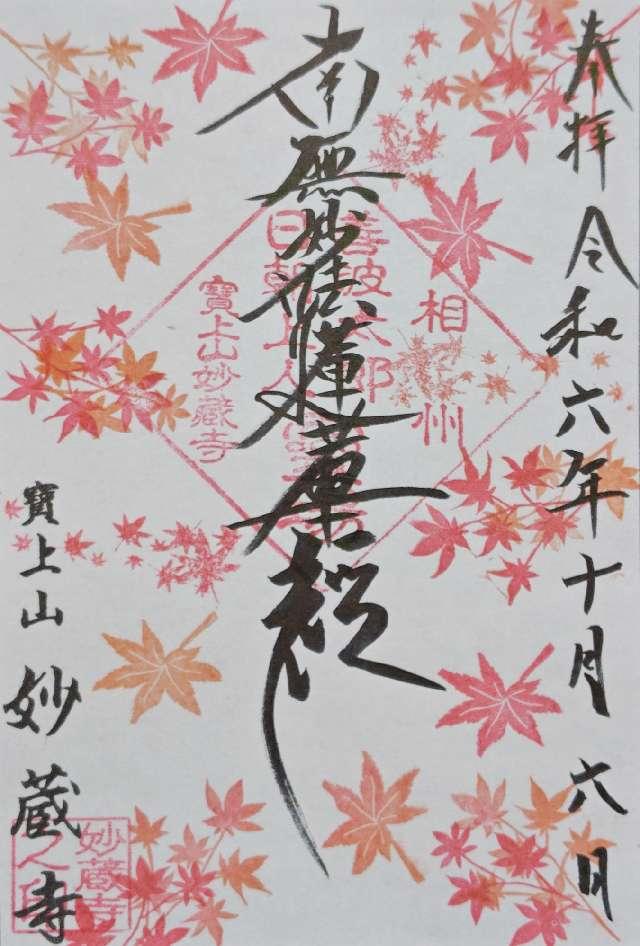 奉拝 令和六年十月六日
南無妙法蓮華経
相州
寶上山妙藏寺
寶上山 妙蔵寺
妙藏寺
之印